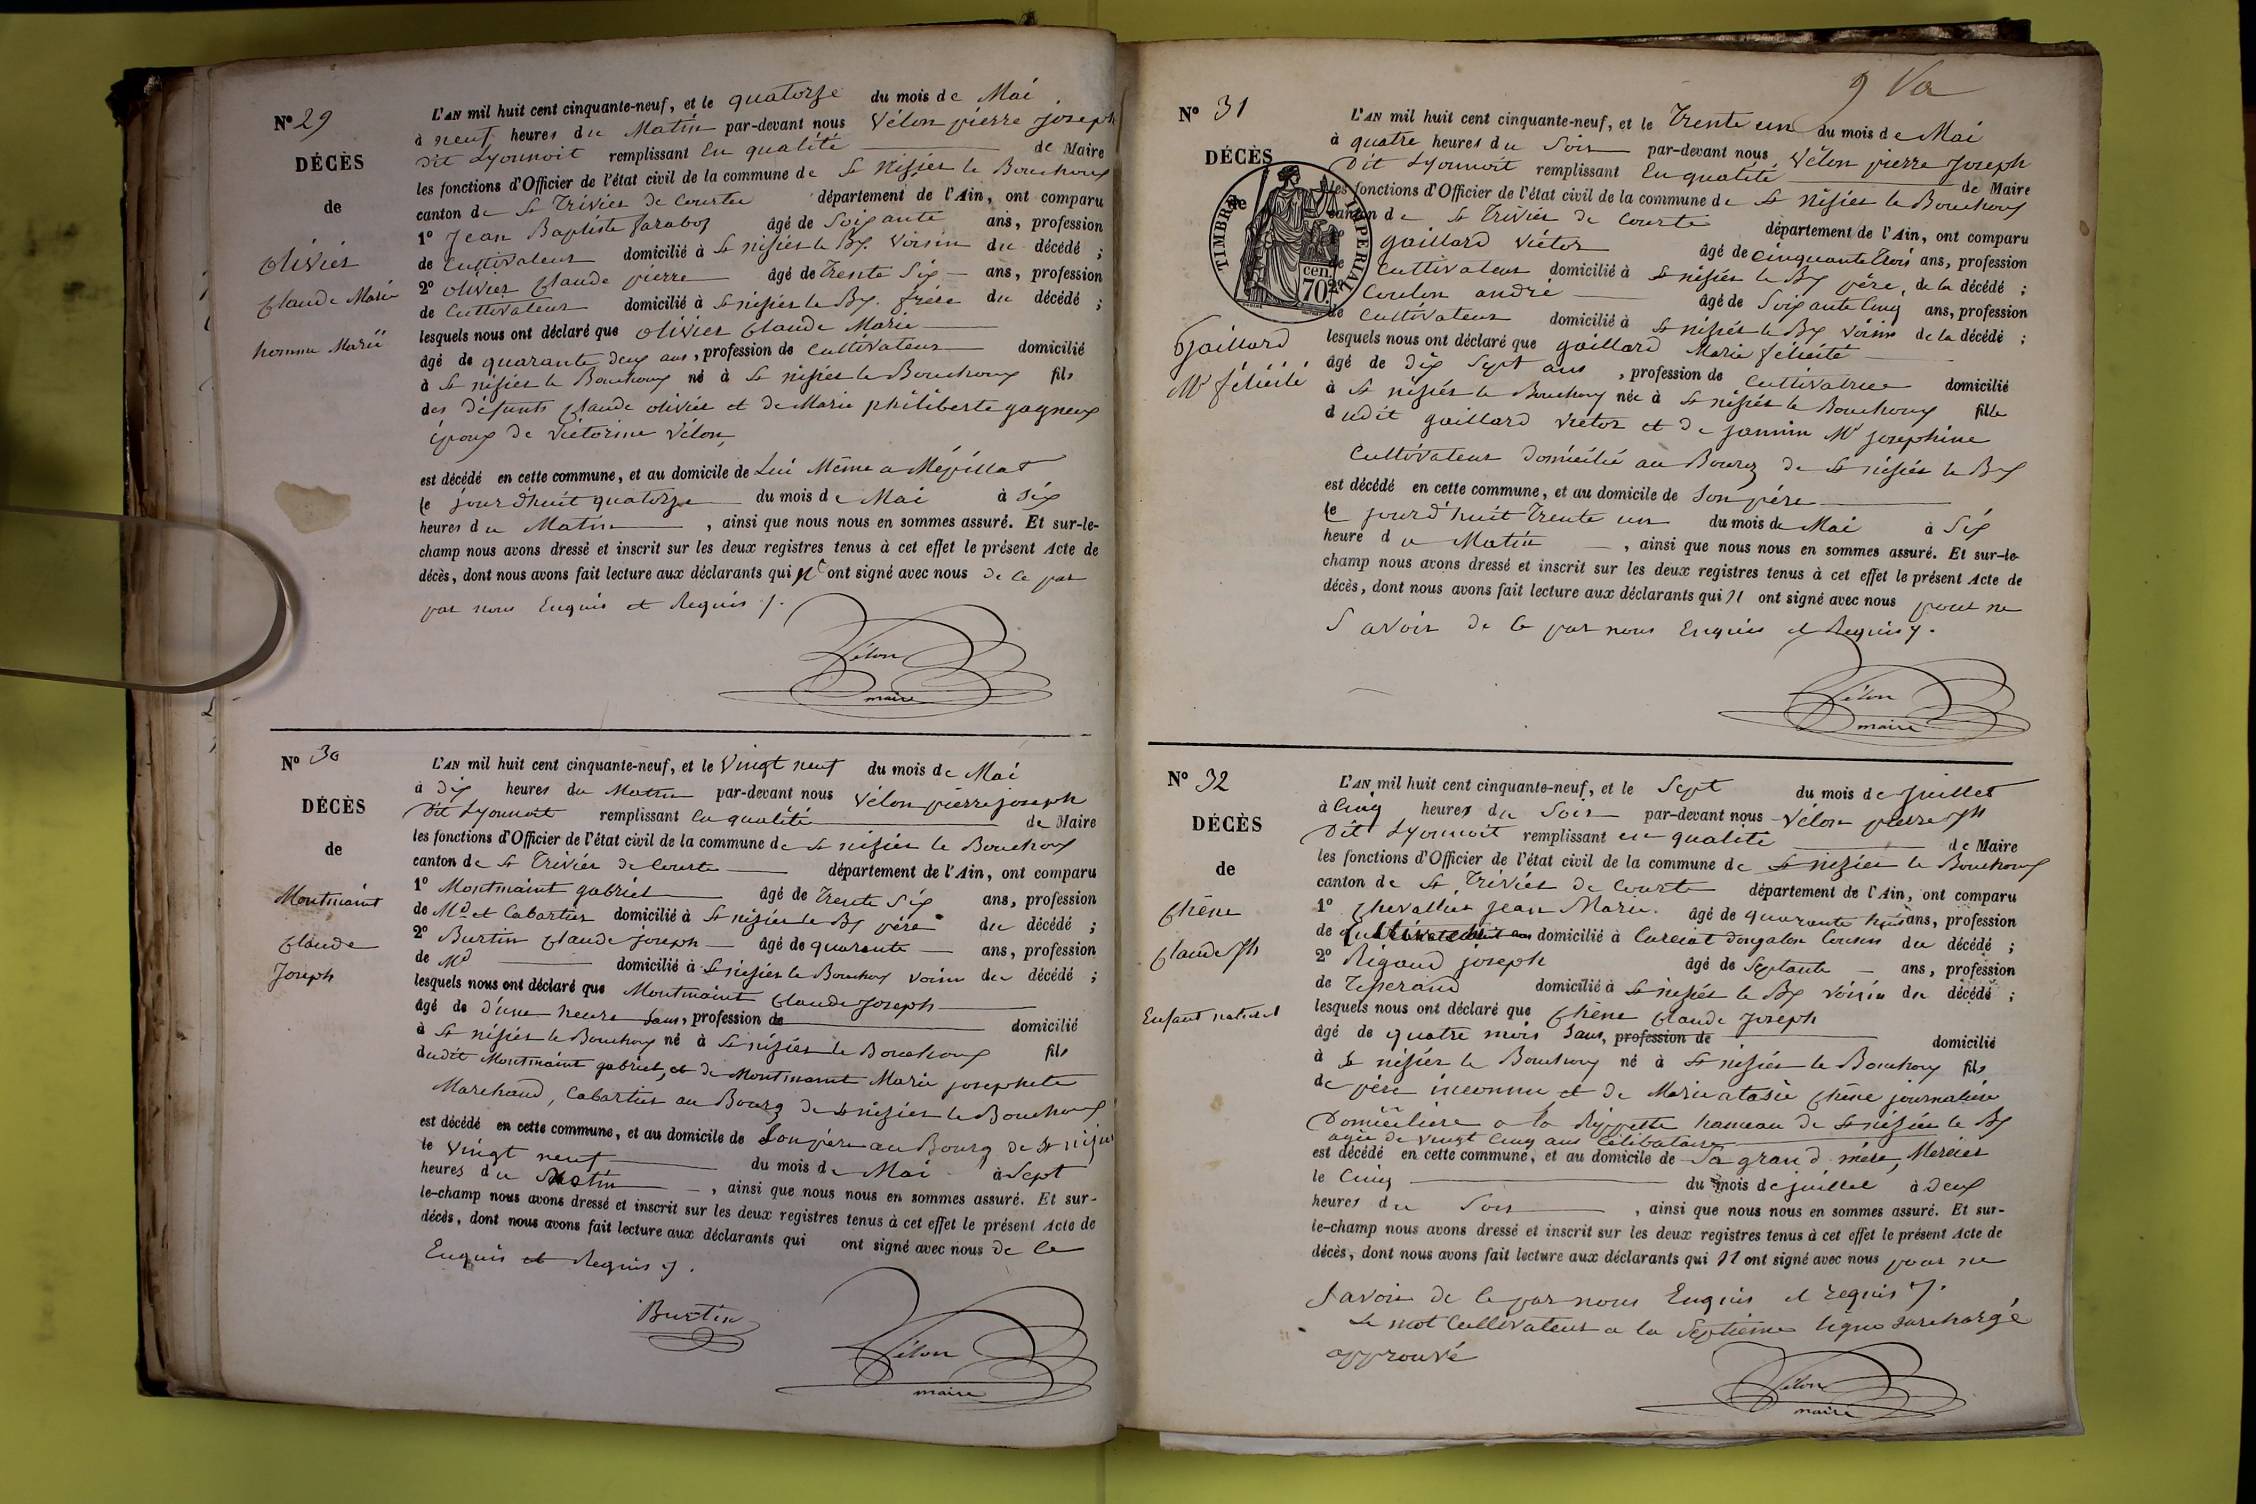 Nº 29
DÉCÈS
de
Olivier
Claude Marie
homme Marié
L'AN mil huit cent cinquante-neuf, et le quatorze du mois de Mai
à neuf heures du Matin par-devant nous Vélon pierre joseph
dit Lyonnoit remplissant En qualité de Maire
les fonctions d'Officier de l'état civil de la commune de St Nisier le Bouchoux
canton de St Trivier de Courte département de l'Ain, ont comparu
1º Jean Baptiste farabos âgé de Soixante ans, profession
de Cultivateur domicilié à St nisier le Bx. Voisin du décédé ;
2º Olivier Claude pierre âgé de Trente Six ans, profession
de Cultivateur domicilié à St nisier le Bx. frère du décédé ;
lesquels nous ont déclaré que Olivier Claude Marie
âgé de quarante deux ans, profession de Cultivateur domicilié
à St nisier le Bouchoux né à St nisier le Bouchoux fils
des défunts Claude olivier et de Marie philiberte gagneux
époux de Victorine Vélon
est décédé en cette commune, et au domicile de Lui Même a Mépillat
le jourd'huit quatorze du mois de Mai à Six
heures du Matin , ainsi que nous nous en sommes assuré. Et sur-le-
champ nous avons dressé et inscrit sur les deux registres tenus à cet effet le présent Acte de
décès, dont nous avons fait lecture aux déclarants qui n'ont signé avec nous de ce par
par nous Enquis et Requis ./.
Vélon
maire
Nº 30
DÉCÈS
de
Montmaint
Claude
Joseph
L'AN mil huit cent cinquante-neuf, et le Vingt neuf du mois de Mai
à Dix heures du Matin par-devant nous Vélon pierre joseph
Dit Lyonnoit remplissant En qualité de Maire
les fonctions d'Officier de l'état civil de la commune de St nisier le Bouchoux
canton de St Trivier de Courte département de l'Ain, ont comparu
1º Montmaint gabriel âgé de Trente Six ans, profession
de Md et Cabartier domicilié à St nisier le Bx père du décédé ;
2º Burtin Claude joseph âgé de quarante ans, profession
de Md domicilié à St nisier le Bouchoux voisin du décédé ;
lesquels nous ont déclaré que Montmaint Claude Joseph
âgé de d'une heure ans, profession de domicilié
à St nisier le Bouchoux né à St nisier le Bouchoux fils
dudit Montmaint gabriel, et de Montmaint Marie josephete
Marchand, Cabartier au Bourg de St nisier le Bouchoux
est décédé en cette commune, et au domicile de Son père au Bourg de St nisier
le Vingt neuf du mois de Mai à Sept
heures du Matin , ainsi que nous nous en sommes assuré. Et sur-
le-champ nous avons dressé et inscrit sur les deux registres tenus à cet effet le présent Acte de
décès, dont nous avons fait lecture aux déclarants qui ont signé avec nous de Ce
Enquis et Requis ./.
Burtin
Vélon
maire
Nº 31
DÉCÈS
de
TIMBRE IMPERIAL
cen. 70.
Gaillard
Mie félicité
L'AN mil huit cent cinquante-neuf, et le Trente un du mois de Mai
à quatre heures du Soir par-devant nous Vélon pierre Joseph
Dit Lyonnoit remplissant En qualité de Maire
les fonctions d'Officier de l'état civil de la commune de St nisier le Bouchoux
canton de St Trivier de Courte département de l'Ain, ont comparu
gaillard Victor âgé de cinquante Trois ans, profession
de Cultivateur domicilié à St nisier le Bx père, de la décédé ;
2º Coulon andré âgé de Soixante Cinq ans, profession
de Cultivateur domicilié à St nisier le Bx Voisin de la décédé ;
lesquels nous ont déclaré que gaillard Marie félicité
âgé de dix Sept ans , profession de Cultivatrice domicilié
à St nisier le Bouchoux née à St nisier le Bouchoux fille
dudit gaillard Victor et de jannin Mie josephine
Cultivateur Domicilié au Bourg de St nisier le Bx
est décédé en cette commune, et au domicile de Son père
le jourd'huit Trente un du mois de Mai à Six
heure du Matin , ainsi que nous nous en sommes assuré. Et sur-le-
champ nous avons dressé et inscrit sur les deux registres tenus à cet effet le présent Acte de
décès, dont nous avons fait lecture aux déclarants qui n ont signé avec nous pour ne
Savoir de Ce par nous Enquis et Requis ./.
Vélon
maire
Nº 32
DÉCÈS
de
Chêne
Claude Jph
Enfant naturel
L'AN mil huit cent cinquante-neuf, et le Sept du mois de juillet
à Cinq heures du Soir par-devant nous Vélon pierre Jph
Dit Lyonnoit remplissant en qualité de Maire
les fonctions d'Officier de l'état civil de la commune de St nisier le Bouchoux
canton de St Trivier de Courte département de l'Ain, ont comparu
1º Chevallier Jean Marie. âgé de quarante huit ans, profession
de Cultivateur domicilié à Curciat dongalon Cousin du décédé ;
2º Rigaud joseph âgé de Septante ans, profession
de Tisserand domicilié à St nisier le Bx Voisin du décédé ;
lesquels nous ont déclaré que Chêne Claude Joseph
âgé de quatre mois ans, profession de domicilié
à St nisier le Bouchoux né à St nisier le Bouchoux fils
de père inconnu et de Marie atasie Chêne journalière
Domicilière a la Rippette hameau de St nisier le Bx
agée de Vingt Cinq ans Célibataire
est décédé en cette commune, et au domicile de Sa grand mère, Mercier
le Cinq du mois de juillet à Deux
heures du Soir , ainsi que nous nous en sommes assuré. Et sur-
le-champ nous avons dressé et inscrit sur les deux registres tenus à cet effet le présent Acte de
décès, dont nous avons fait lecture aux déclarants qui n ont signé avec nous pour ne
Savoir de Ce par nous Enquis et requis ./.
Le mot Cultivateur a la Septième ligne surchargé
approuvé
Vélon
maire